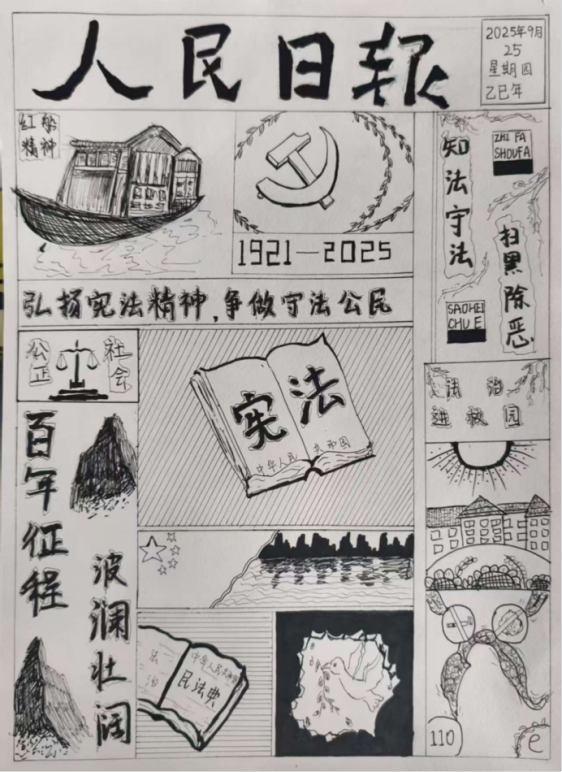 人民日報
2025年9月
25
星期四
乙巳年
红船
精神
1921—2025
知法守法
ZHI FA
SHOUFA
扫黑除恶
SAOHEI
CHU E
弘扬宪法精神,争做守法公民
公正
社会
宪法
中华人民 共和国
法治
进校园
百年征程
波澜壮阔
法治
中华人民共和国
民法典
110